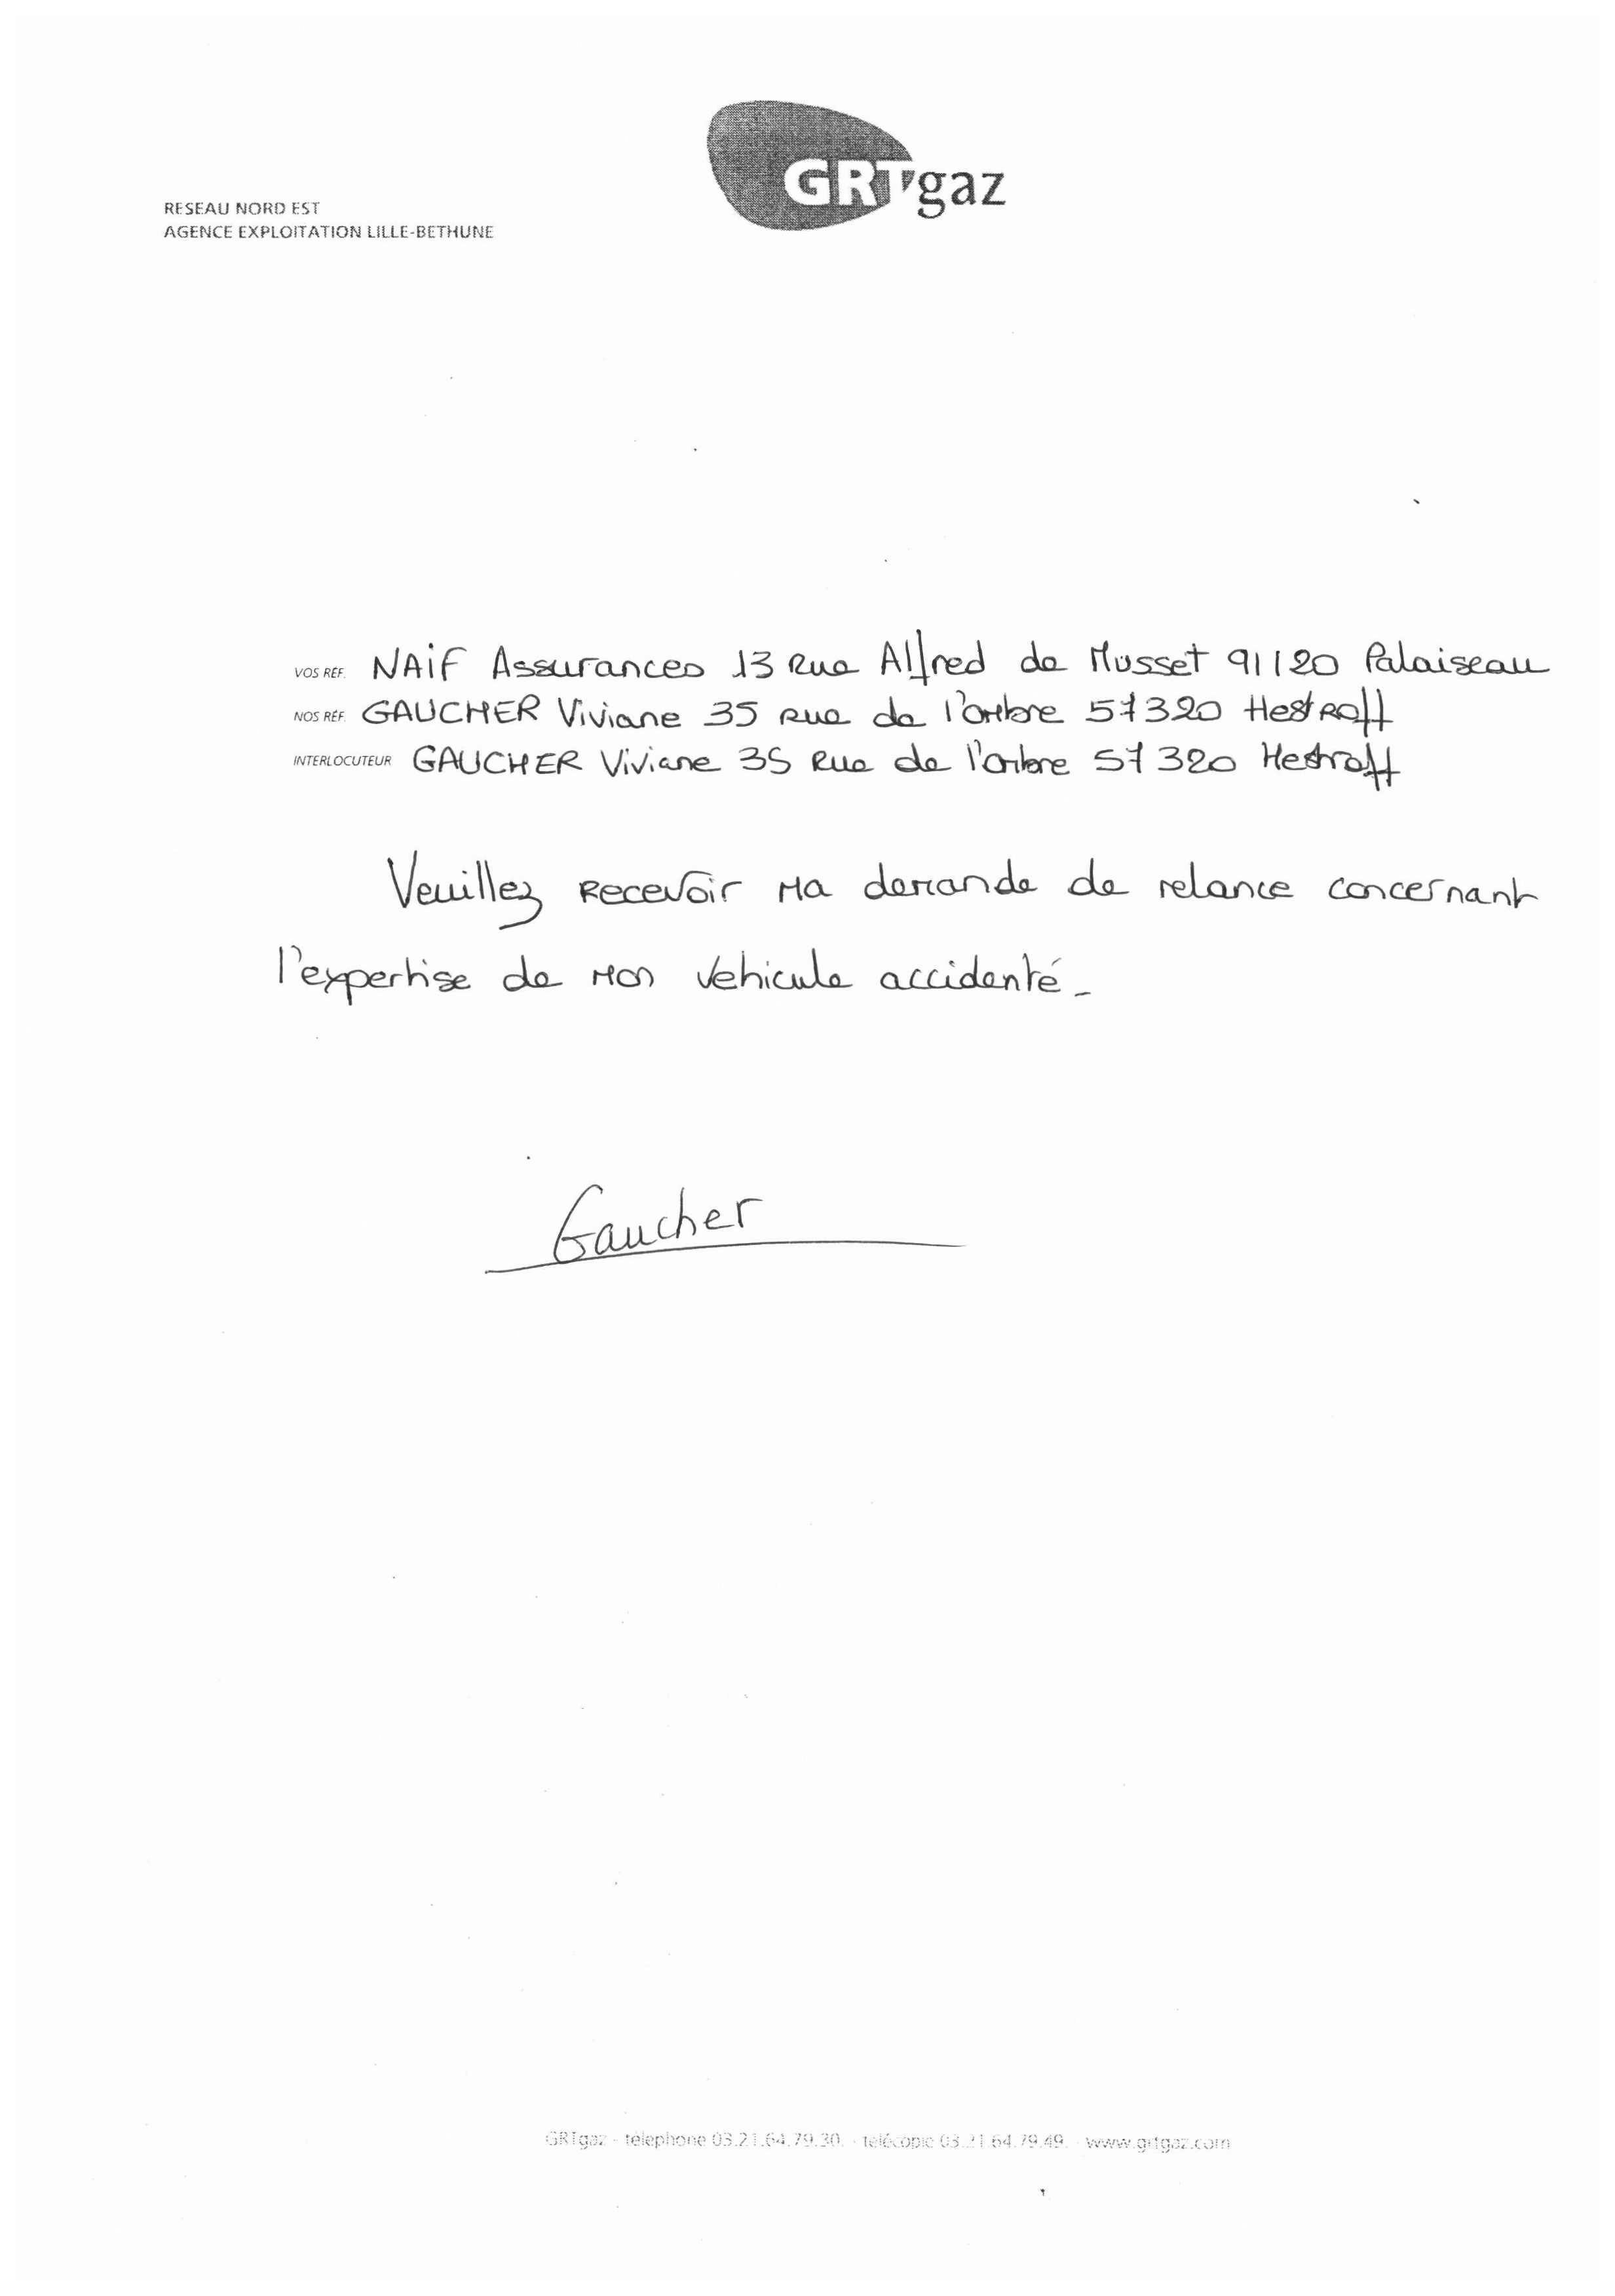 GRTgaz
RESEAU NORD EST
AGENCE EXPLOITATION LILLE-BETHUNE
VOS RÉF. NAIF Assurances 13 Rue Alfred de Musset 91120 Palaiseau
NOS RÉF. GAUCHER Viviane 35 Rue de l'ombre 57320 Hestroff
INTERLOCUTEUR GAUCHER Viviane 35 Rue de l'ombre 57320 Hestroff
Veuillez recevoir ma demande de relance concernant
l'expertise de mon vehicule accidenté_
Gaucher
GRTgaz - téléphone 03.21.64.79.30. - télécopie 03.21.64.79.49. - www.grtgaz.com